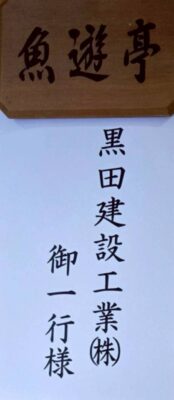 魚遊亭
黒田建設工業㈱
御一行様